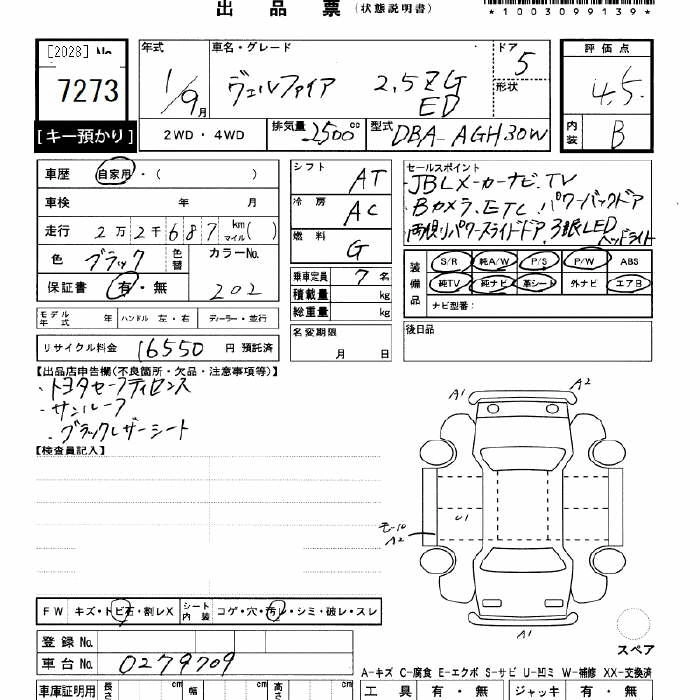 出品票（状態説明書）
*1003099139*
[2028] No. 7273
[キー預かり]
年式 1/9月
車名・グレード ヴェルファイア 2.5ZG ED
ドア 5
形状
評価点 4.5
内装 B
2WD・4WD
排気量 2500cc
型式 DBA-AGH30W
車歴 自家用・( )
車検 年 月
走行 2万2千687 km マイル( )
色 ブラック 色替 カラーNo. 202
保証書 有・無
モデル年式 年 ハンドル 左・右 ディーラー・並行
リサイクル料金 16550 円 預託済
シフト AT
冷房 AC
燃料 G
乗車定員 7 名
積載量 kg
総重量 kg
名変期限 月 日
セールスポイント
JBLメーカーナビ.TV
Bカメラ.ETC パワーバックドア
両側パワースライドドア.3眼LED
ヘッドライト
装備品 S/R 純A/W P/S P/W ABS
純TV 純ナビ 革シート 外ナビ エアB
ナビ型番：
後日品
【出品店申告欄(不良箇所・欠品・注意事項等)】
・トヨタセーフティセンス
・サンルーフ
・ブラックレザーシート
【検査員記入】
A1 A2
U1
モール
A2
A1
スペア
FW キズ・トビ石・割レX シート内装 コゲ・穴・汚レ・シミ・破レ・スレ
登録No.
車台No. 0279709
A-キズ C-腐食 E-エクボ S-サビ U-凹ミ W-補修 XX-交換済
車庫証明用 長さ cm 幅 cm 高さ cm
工具 有・無 ジャッキ 有・無